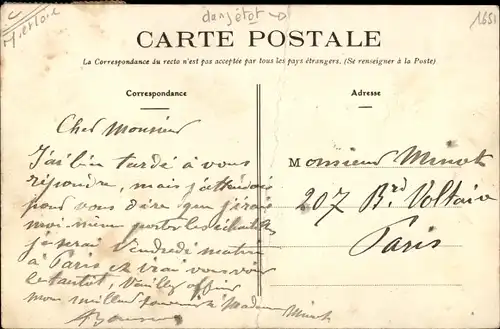 dans état
1651
CARTE POSTALE
La Correspondance du recto n'est pas acceptée par tous les pays étrangers. (Se renseigner à la Poste)
Correspondance
Adresse
Cher Monsieur
J'ai bien tardé à vous
répondre, mais j'attendais
pour vous dire que j'irais
moi même porter les
je serai Vendredi matin
à Paris et irai vous voir
le tantôt, Veuillez offrir
mon meilleur souvenir à Madame Minot
Monsieur Minot
207 Bd Voltaire
Paris